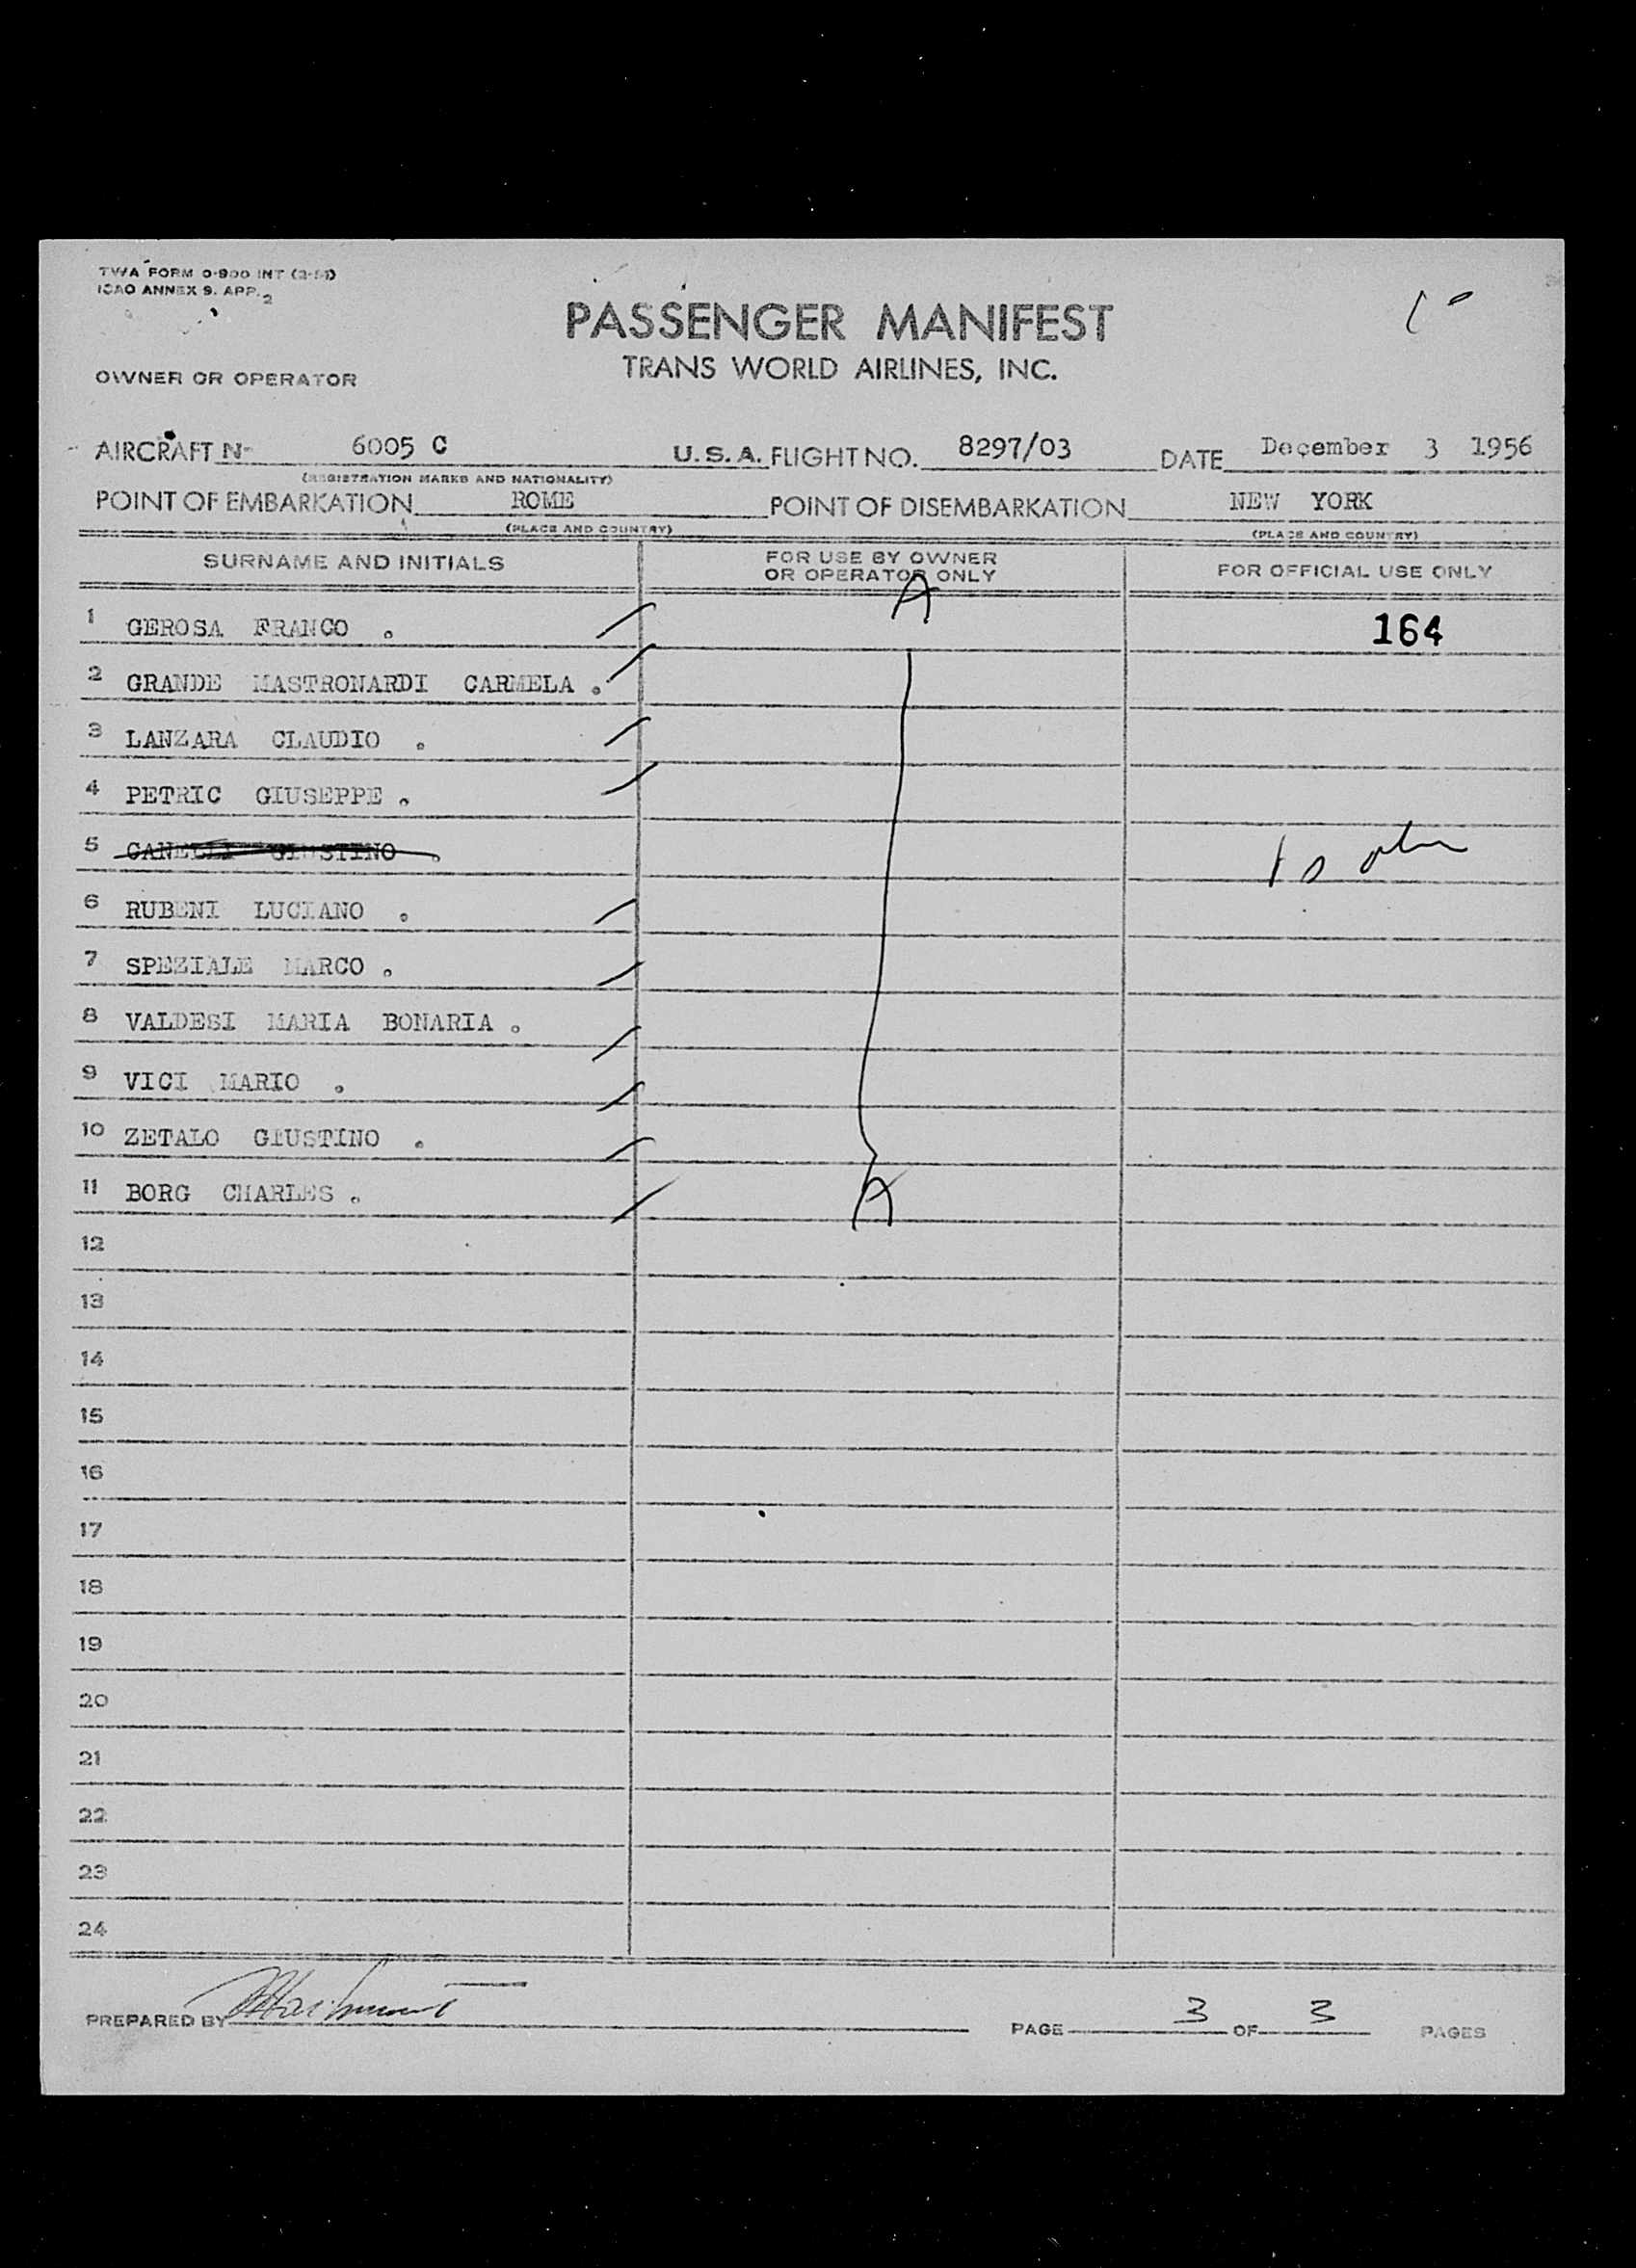 TWA FORM O-900 INT (2-51)
ICAO ANNEX 9. APP. 2
PASSENGER MANIFEST
TRANS WORLD AIRLINES, INC.
OWNER OR OPERATOR
AIRCRAFT N- 6005 C U.S.A. FLIGHT NO. 8297/03 DATE December 3 1956
(REGISTRATION MARKS AND NATIONALITY)
POINT OF EMBARKATION ROME POINT OF DISEMBARKATION NEW YORK
(PLACE AND COUNTRY) (PLACE AND COUNTRY)
SURNAME AND INITIALS FOR USE BY OWNER OR OPERATOR ONLY FOR OFFICIAL USE ONLY
A
1 GEROSA FRANCO . 164
2 GRANDE MASTRONARDI CARMELA .
3 LANZARA CLAUDIO .
4 PETRIC GIUSEPPE .
5 CANELLI GIUSTINO .
6 RUBENI LUCIANO .
7 SPEZIALE MARCO .
8 VALDESI MARIA BONARIA .
9 VICI MARIO .
10 ZETALO GIUSTINO .
11 BORG CHARLES . A
12
13
14
15
16
17
18
19
20
21
22
23
24
PREPARED BY PAGE 3 OF 3 PAGES